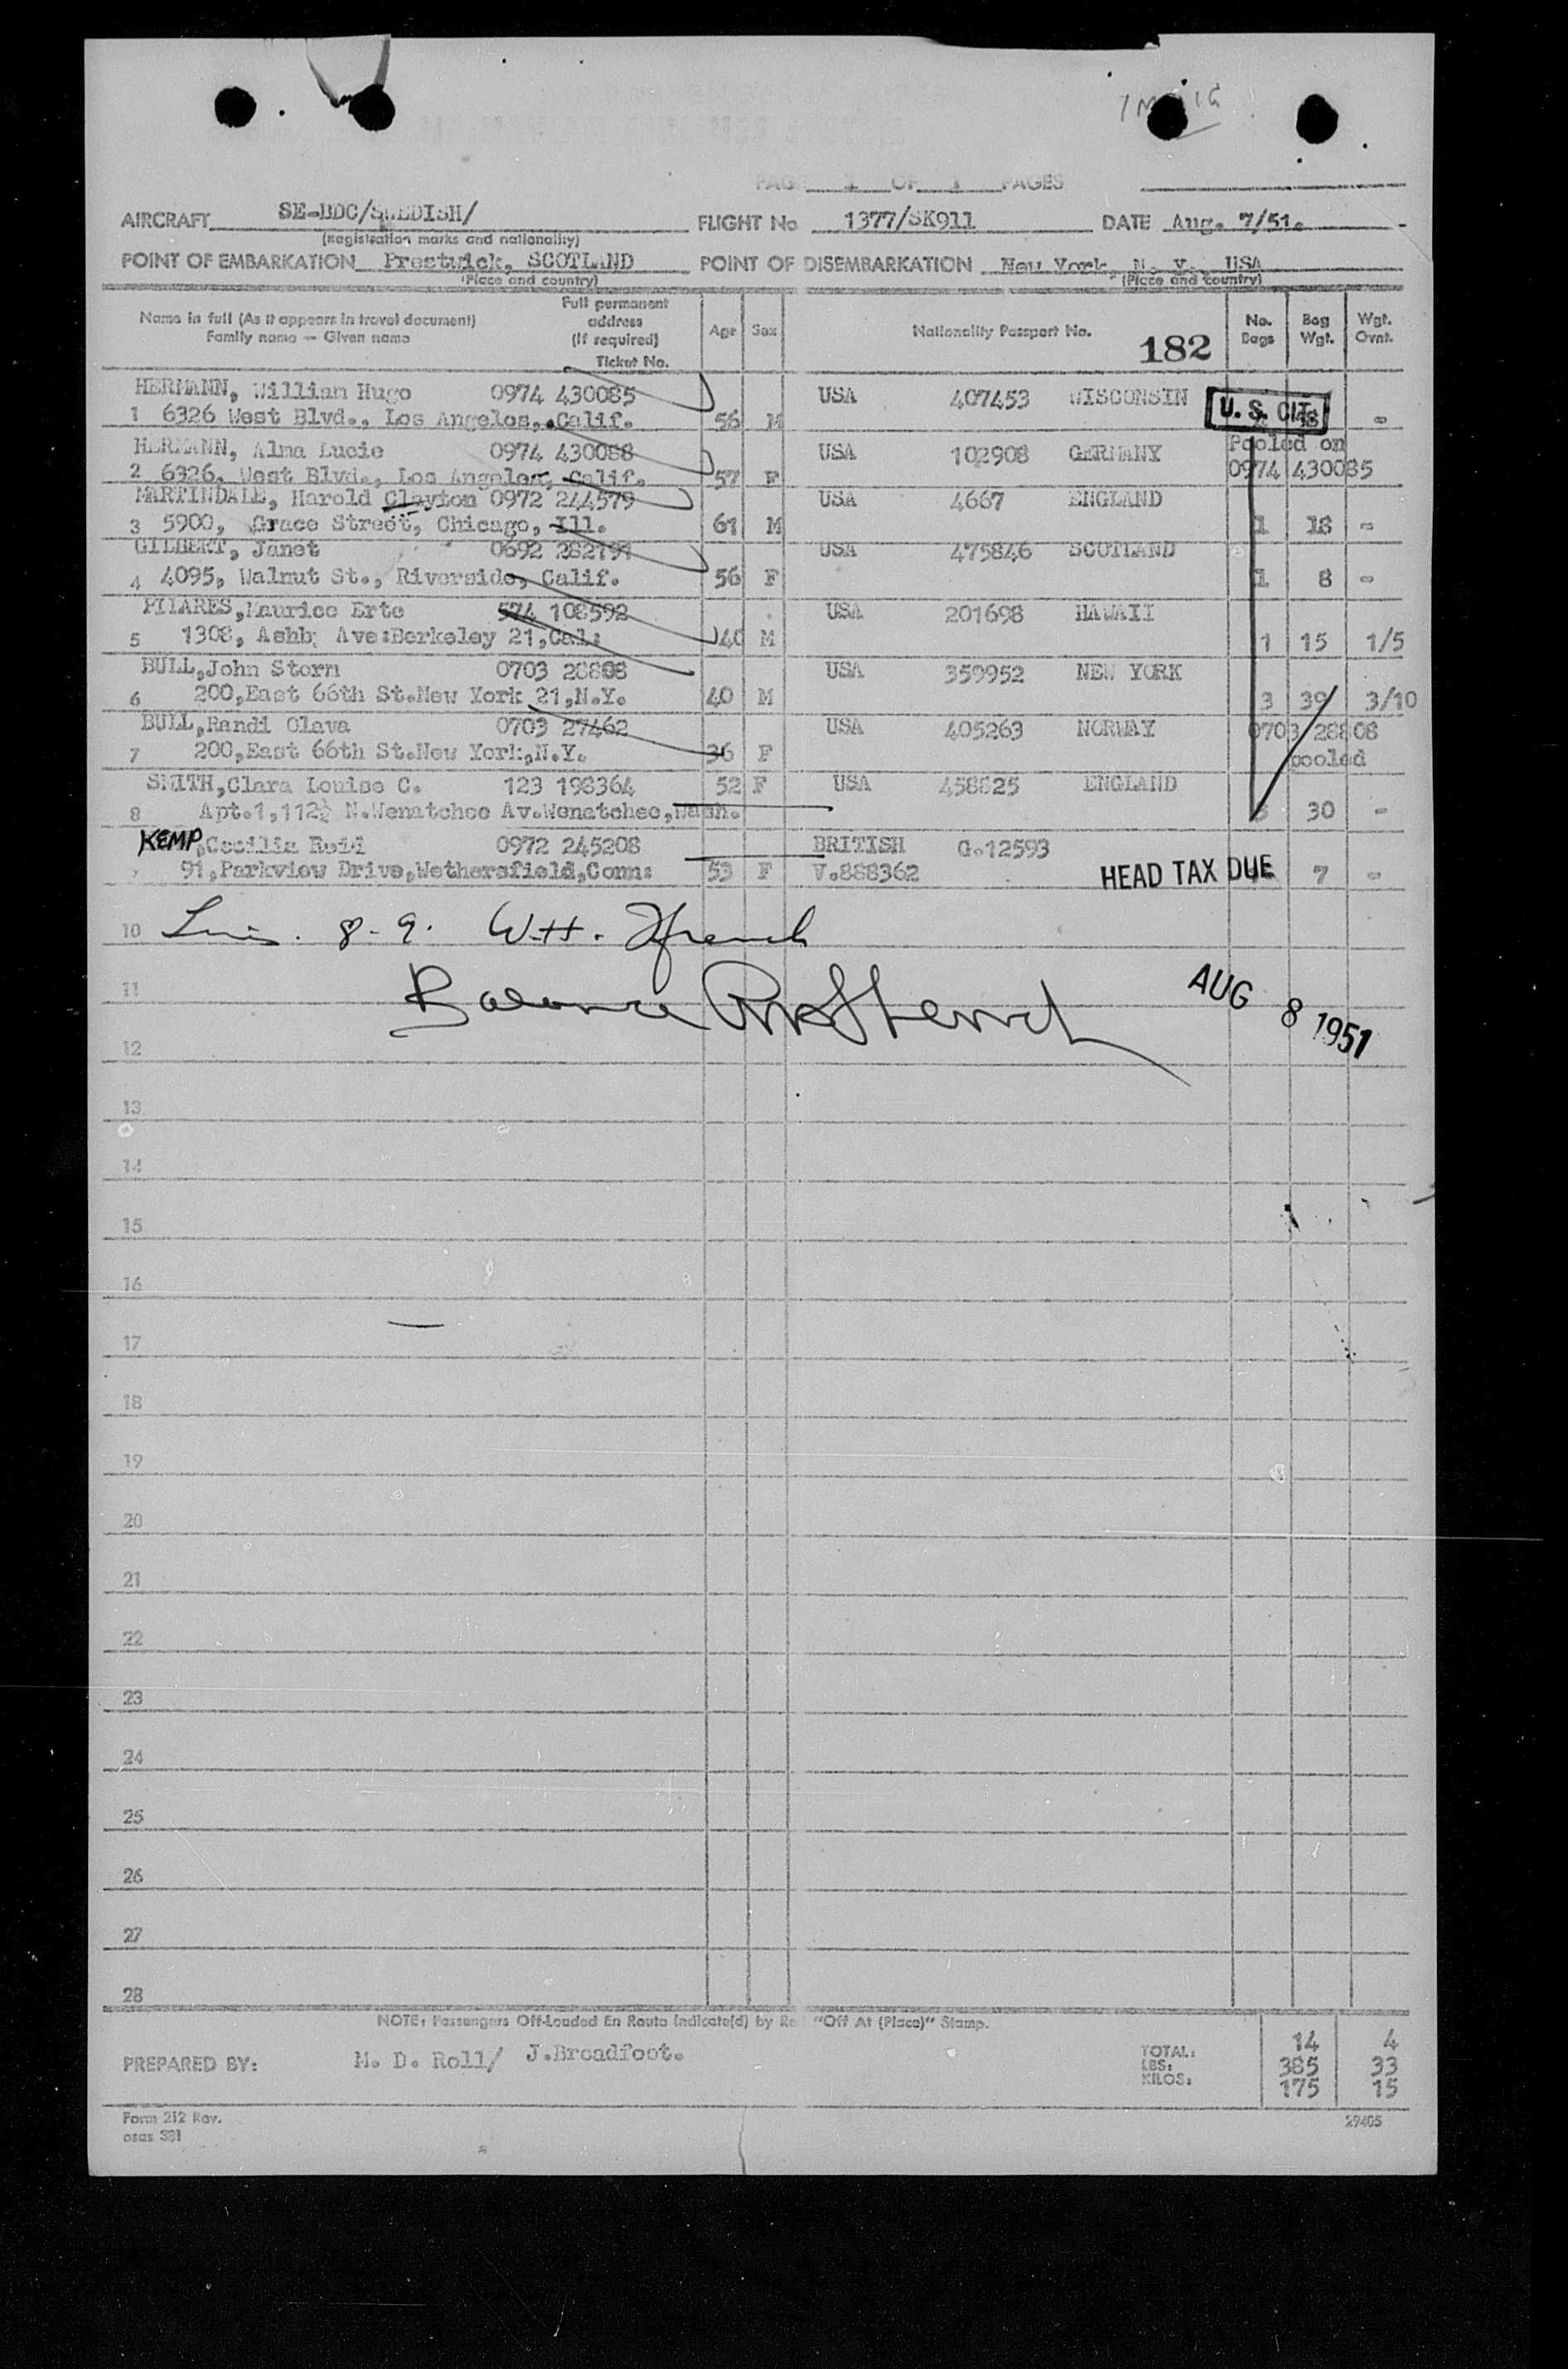 PAGE 1 OF 1 PAGES
AIRCRAFT SE-BDC/SWEDISH/ FLIGHT No 1377/SK911 DATE Aug. 7/51.
(Registration marks and nationality)
POINT OF EMBARKATION Prestwick, SCOTLAND POINT OF DISEMBARKATION New York, N. Y. USA
(Place and country) (Place and country)
Name in full (As it appears in travel document) Family name — Given name Full permanent address (If required) Ticket No. Age Sex Nationality Passport No. 182 No. Bags Bag Wgt. Wgt. Ovnt.
HERMANN, William Hugo 0974 430085 USA 407453 WISCONSIN U. S. CIT.
1 6326 West Blvd., Los Angeles, Calif. 56 M -
HERMANN, Alma Lucie 0974 430088 USA 102908 GERMANY Pooled on
2 6326, West Blvd., Los Angeles, Calif. 57 F 0974 430085
MARTINDALE, Harold Clayton 0972 244579 USA 4667 ENGLAND
3 5900, Grace Street, Chicago, Ill. 61 M 1 18 -
GILBERT, Janet 0692 282191 USA 475846 SCOTLAND
4 4095, Walnut St., Riverside, Calif. 56 F 1 8 -
PILARES,Maurice Erte 574 108592 USA 201698 HAWAII
5 1308, Ashby Ave:Berkeley 21,Cal: 40 M 1 15 1/5
BULL,John Storm 0703 28808 USA 359952 NEW YORK
6 200,East 66th St.New York 21,N.Y. 40 M 3 39 3/10
BULL,Randi Olava 0703 27462 USA 405263 NORWAY 0703 28808
7 200,East 66th St.New York,N.Y. 36 F pooled
SMITH,Clara Louise C. 123 198364 52 F USA 458825 ENGLAND
8 Apt.1,112½ N.Wenatchee Av.Wenatchee,Wash. 30 -
KEMP,Cecilia Reid 0972 245208 BRITISH G.12593
91,Parkview Drive,Wethersfield,Conn: 53 F V.888362 HEAD TAX DUE 7 -
10 8-9. W.H. French
11 Balance AUG 8 1951
12
13
14
15
16
17
18
19
20
21
22
23
24
25
26
27
28
NOTE: Passengers Off-Loaded En Route Indicate(d) by Red "Off At (Place)" Stamp.
PREPARED BY: M. D. Roll/ J.Broadfoot.
TOTAL: 14 4
LBS: 385 33
KILOS: 175 15
Form 212 Rev. 29405
osas 381